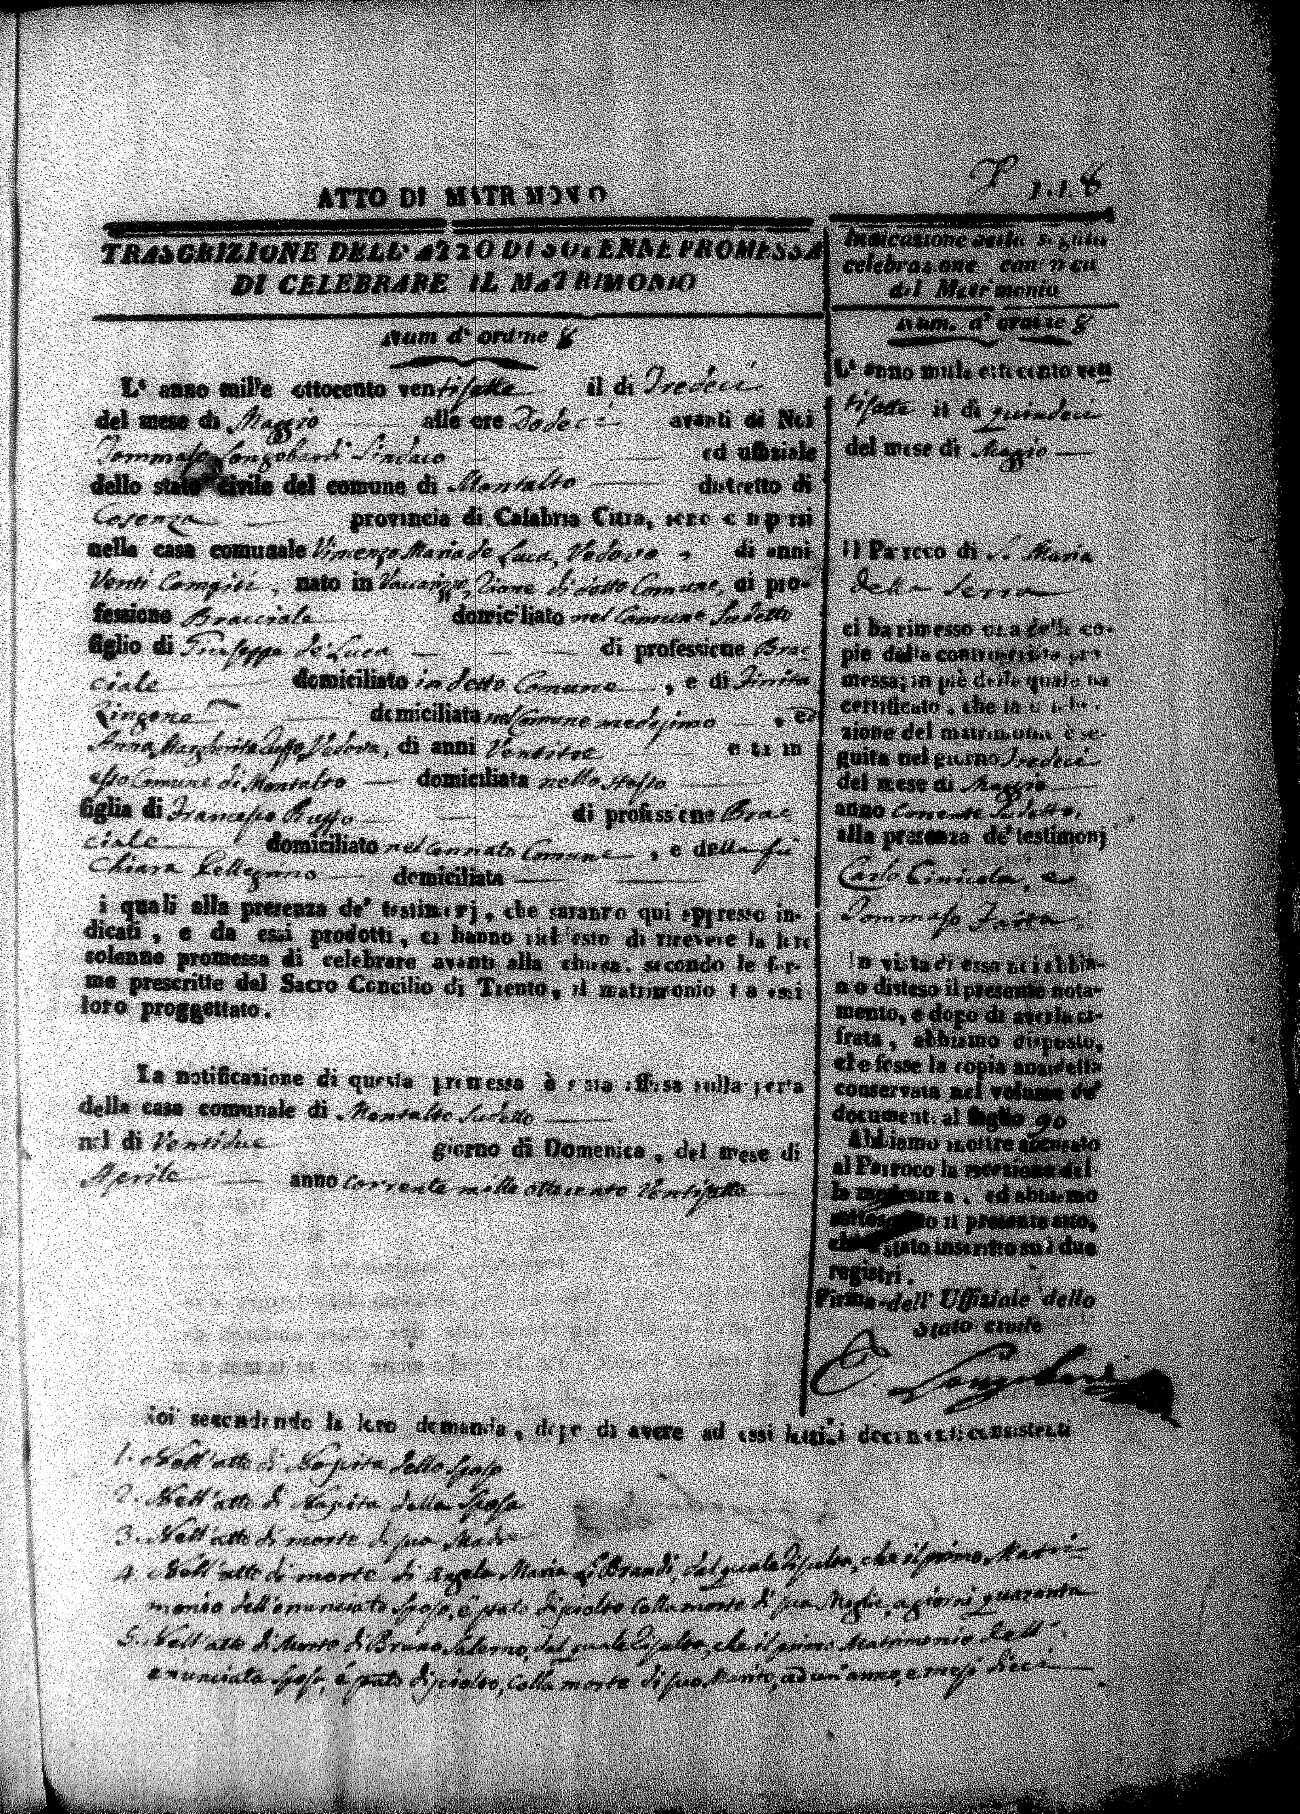 ATTO DI MATRIMONIO
TRASCRIZIONE DELL' ATTO DI SOLENNE PROMESSA
DI CELEBRARE IL MATRIMONIO
Num d' ordine 8
L' anno mille ottocento ventisette il di Tredeci
del mese di Maggio alle ore Dodeci avanti di Noi
Tommaso Longobardi Sindaco ed uffiziale
dello stato civile del comune di Montalto distretto di
Cosenza provincia di Calabria Citra, sono comparsi
nella casa comunale Vincenzo Maria de Luca, Vedovo di anni
Venti nato in Vaccarizzo, di detto Comune, di pro-
fessione Bracciale domiciliato nel Comune sudetto
figlio di Giuseppe de Luca di professione Brac-
ciale domiciliato in detto Comune, e di
domiciliata nel Comune medesimo, ed
Anna Margherita Ruffo Vedova, di anni Ventitre nata in
esso Comune di Montalto domiciliata nello stesso
figlia di Francesco Ruffo di professione Brac-
ciale domiciliato nel Comune, e della fù
Chiara Pellegrino domiciliata
i quali alla presenza de' testimonj, che saranno qui appresso in-
dicati, e da essi prodotti, ci hanno richiesto di ricevere la loro
solenne promessa di celebrare avanti alla chiesa, secondo le for-
me prescritte dal Sacro Concilio di Trento, il matrimonio tra essi
loro proggettato.
La notificazione di questa promessa è stata affissa sulla porta
della casa comunale di Montalto sudetto
nel di Ventidue giorno di Domenica, del mese di
Aprile anno corrente mille ottocento Ventisette
8
Indicazione della seguita
celebrazione canonica
del Matrimonio
Num. d' ordine 8
L' anno mille ottocento ven
tisette il di quindeci
del mese di Maggio
Il Parroco di S. Maria
della Serra
ci ha rimesso una delle co-
pie della controscritta pro-
messa; in piè della quale ha
certificato, che la celebra-
zione del matrimonio è se-
guita nel giorno Tredeci
del mese di Maggio
anno corrente sudetto,
alla presenza de' testimonj
Carlo Cinicola, e
Tommaso
In vista di essa noi abbia-
mo disteso il presente nota-
mento, e dopo di averla ci-
frata, abbiamo disposto,
che fosse la copia anzidetta
conservata nel volume de'
documenti al foglio 90
Abbiamo inoltre accusato
al Parroco la recezione del
la medesima, ed abbiamo
sottoscritto il presente atto,
che è stato inscritto sui due
registri.
Firma dell' Uffiziale dello
Stato civile
T. Longobardi
Noi secondando la loro domanda, dopo di avere ad essi letti i documenti consistenti
1. Nell'atto di Nascita dello Sposo
2. Nell'atto di Nascita della Sposa
3. Nell'atto di morte di suo Madre
4. Nell'atto di morte di Angela Maria, dal quale risulta, che il primo Matri-
monio dell'enunciato Sposo, è stato disciolto colla morte di sua Moglie, a giorni quaranta
5. Nell'atto di Morte di Bruno Salerno, dal quale risulta, che il primo Matrimonio dell'
enunciata Sposa, è stato disciolto, colla morte di suo Marito, ad un'anno, e mesi dieci